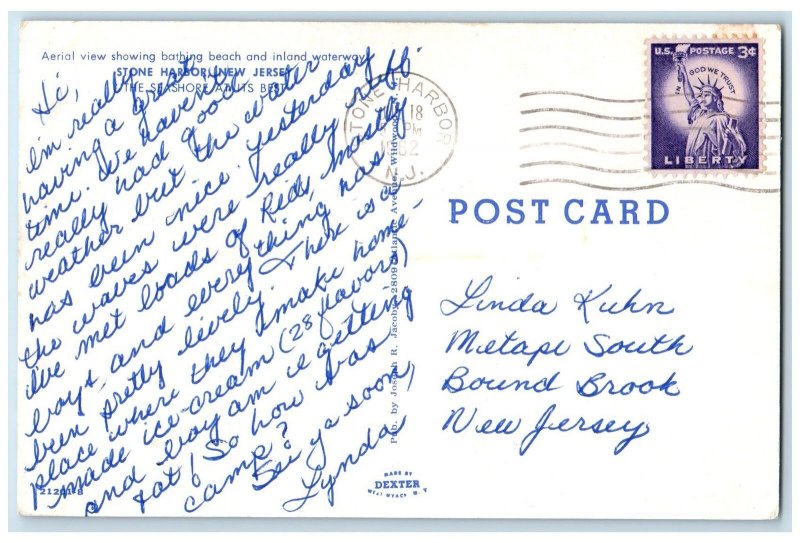 Aerial view showing bathing beach and inland waterway
STONE HARBOR, NEW JERSEY
THE SEASHORE AT ITS BEST
Hi,
I'm really
having a great
time. We haven't
really had good
weather but the water
has been nice. Yesterday
the waves were really ruff.
I've met loads of Reds, mostly
boys, and everything has
been pretty lively. There is a
place where they make home-
made ice-cream (28 flavors)
and boy am I getting
fat! So how was
camp?
See ya soon,
Lynda
21241-B
Pub. by Joseph R. Jacoby, 2809 Atlantic Avenue, Wildwood, N. J.
MADE BY
DEXTER
WEST NYACK N Y
STONE HARBOR
18
PM
N.J.
U.S. POSTAGE 3¢
IN GOD WE TRUST
LIBERTY
POST CARD
Linda Kuhn
Metape South
Bound Brook
New Jersey